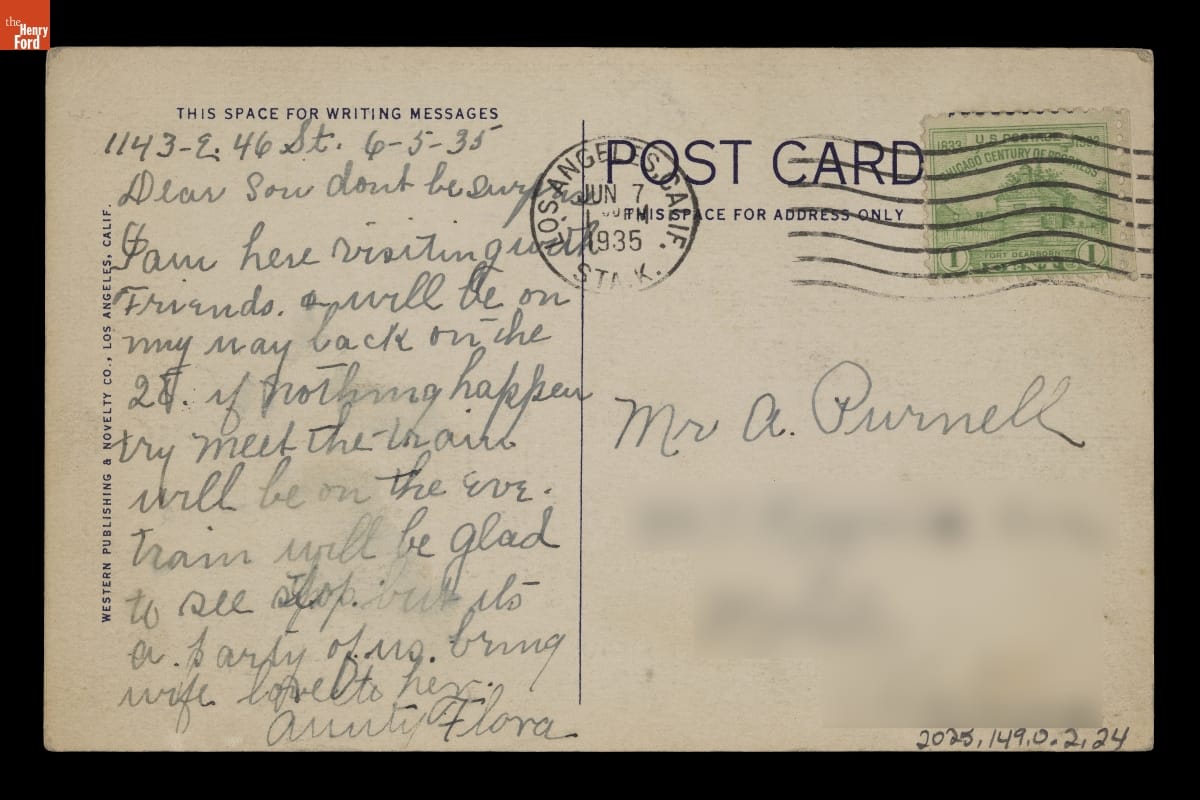 the
Henry
Ford
THIS SPACE FOR WRITING MESSAGES
1143-E. 46 St. 6-5-35
Dear Son dont be surprise
I am here visiting with
Friends. will be on
my way back on the
if nothing happen
try meet the train
will be on the Eve.
train will be glad
to see but its
a. party of us. bring
wife love to her.
Aunty Flora
WESTERN PUBLISHING & NOVELTY CO., LOS ANGELES, CALIF.
POST CARD
THIS SPACE FOR ADDRESS ONLY
LOS ANGELES, CALIF.
JUN 7
1935
STA. K.
1833 U.S. POSTAGE 1933
CHICAGO CENTURY OF PROGRESS
FORT DEARBORN
1 CENT 1
Mr A. Purnell
2025.149.0.2.24